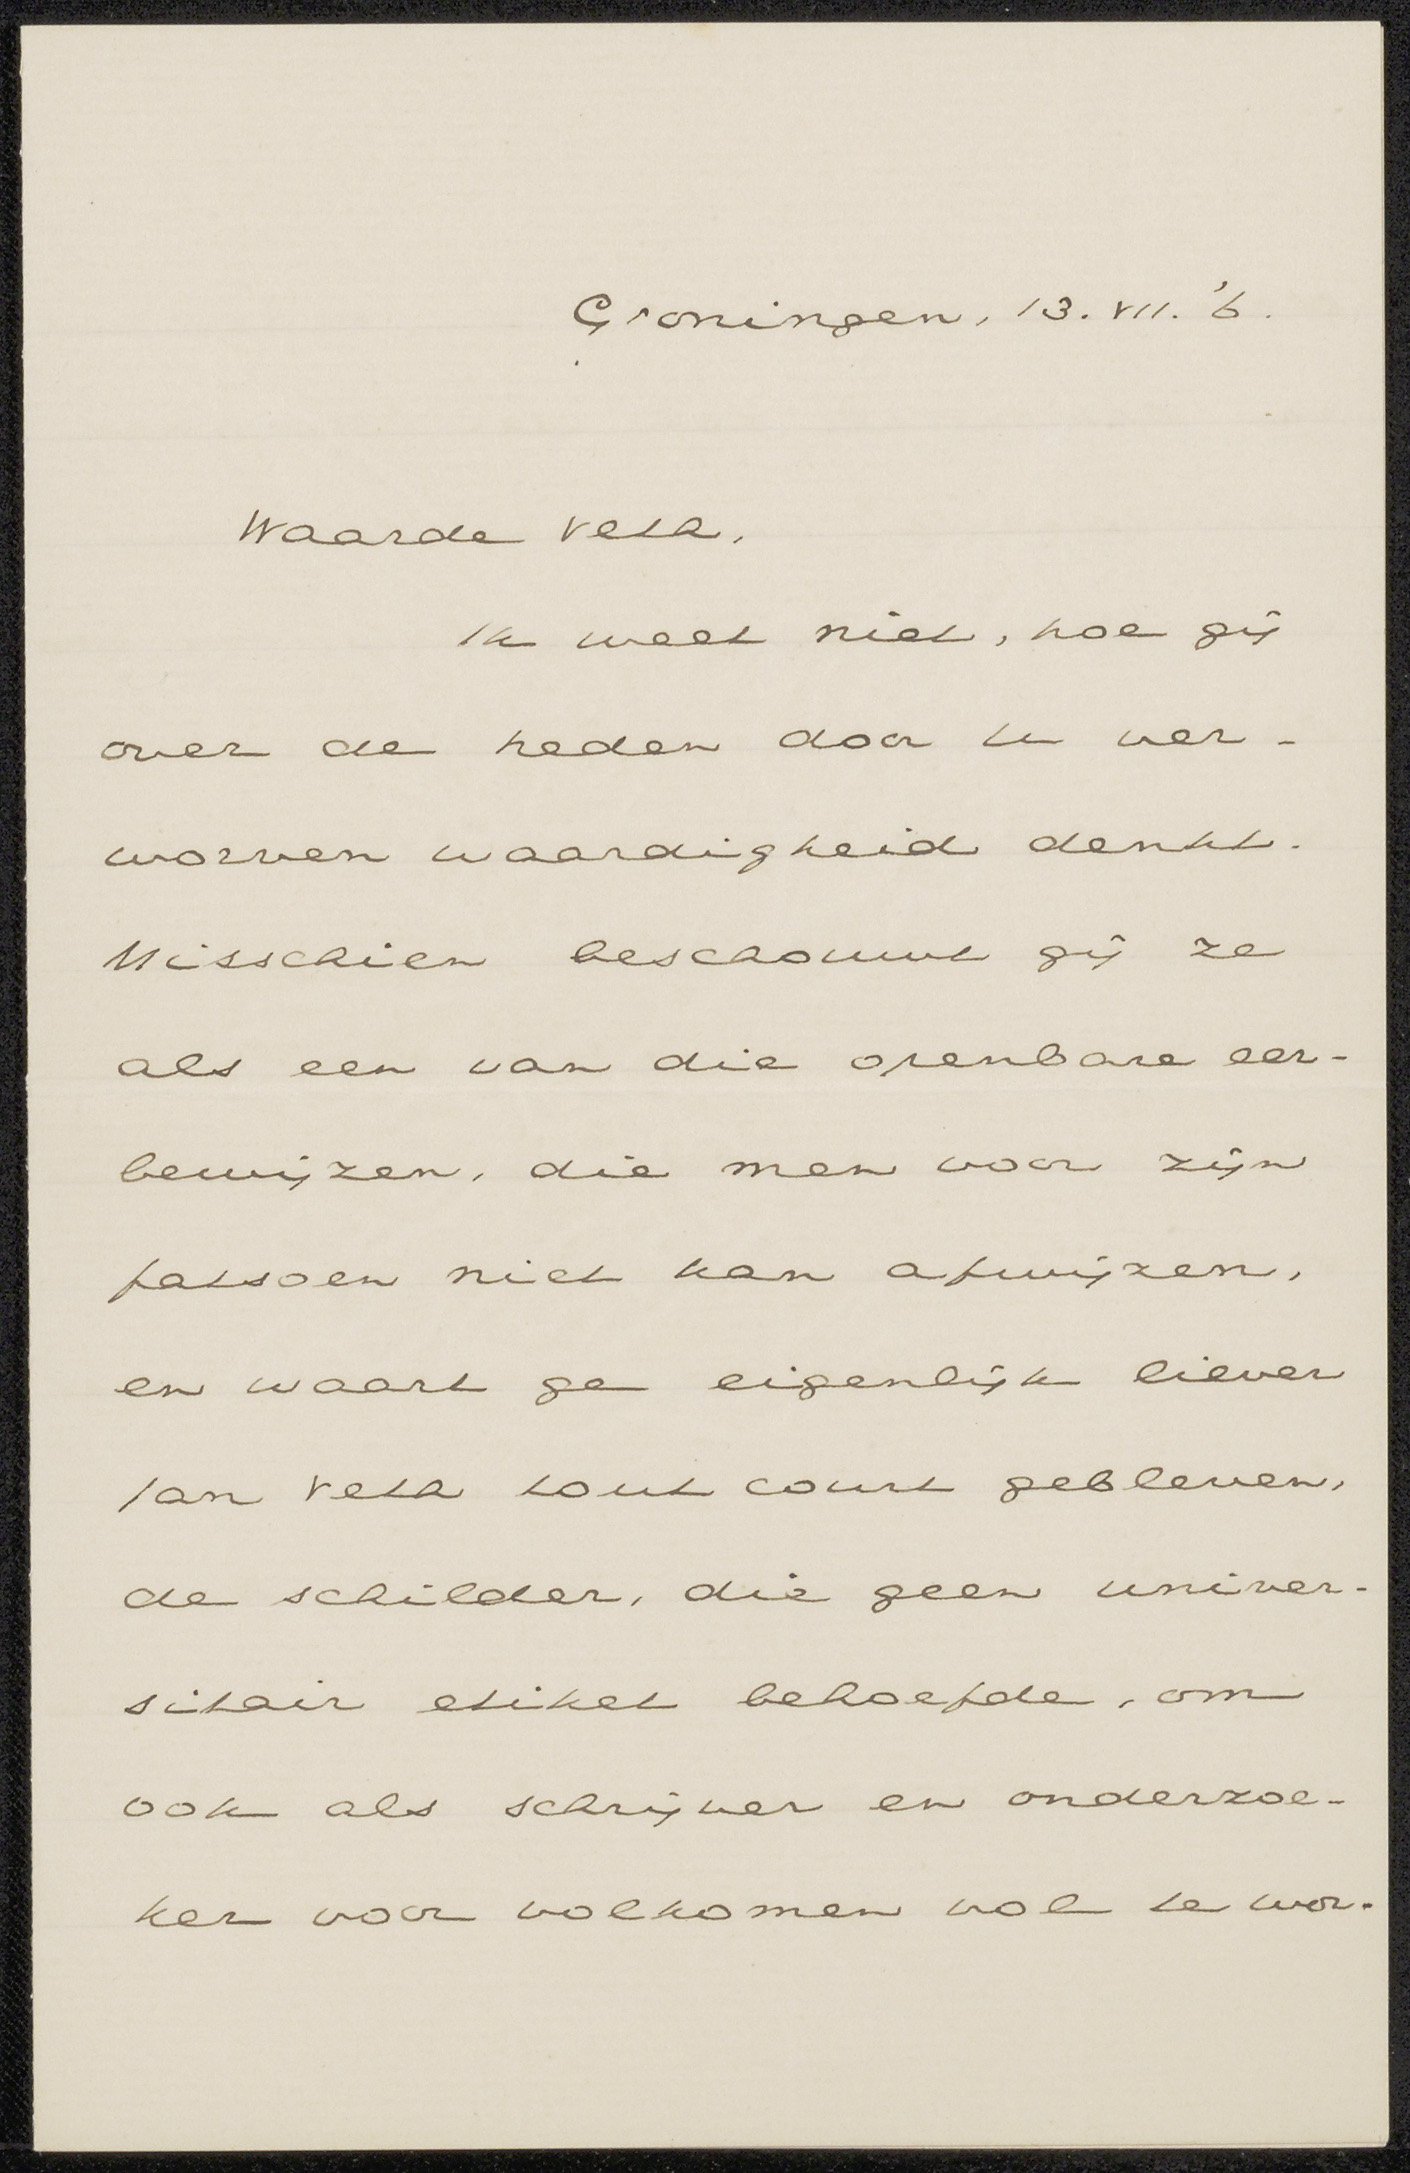 Groningen, 13. VII. '6.
Waarde Veth,
Ik weet niet, hoe gij
over de heden door U ver-
worven waardigheid denkt.
Misschien beschouwt gij ze
als een van die openbare eer-
bewijzen, die men voor zijn
fatsoen niet kan afwijzen,
en waart ge eigenlijk liever
Jan Veth tout court gebleven,
de schilder, die geen univer-
sitair etiket behoefde, om
ook als schrijver en onderzoe-
ker voor volkomen vol te wor-